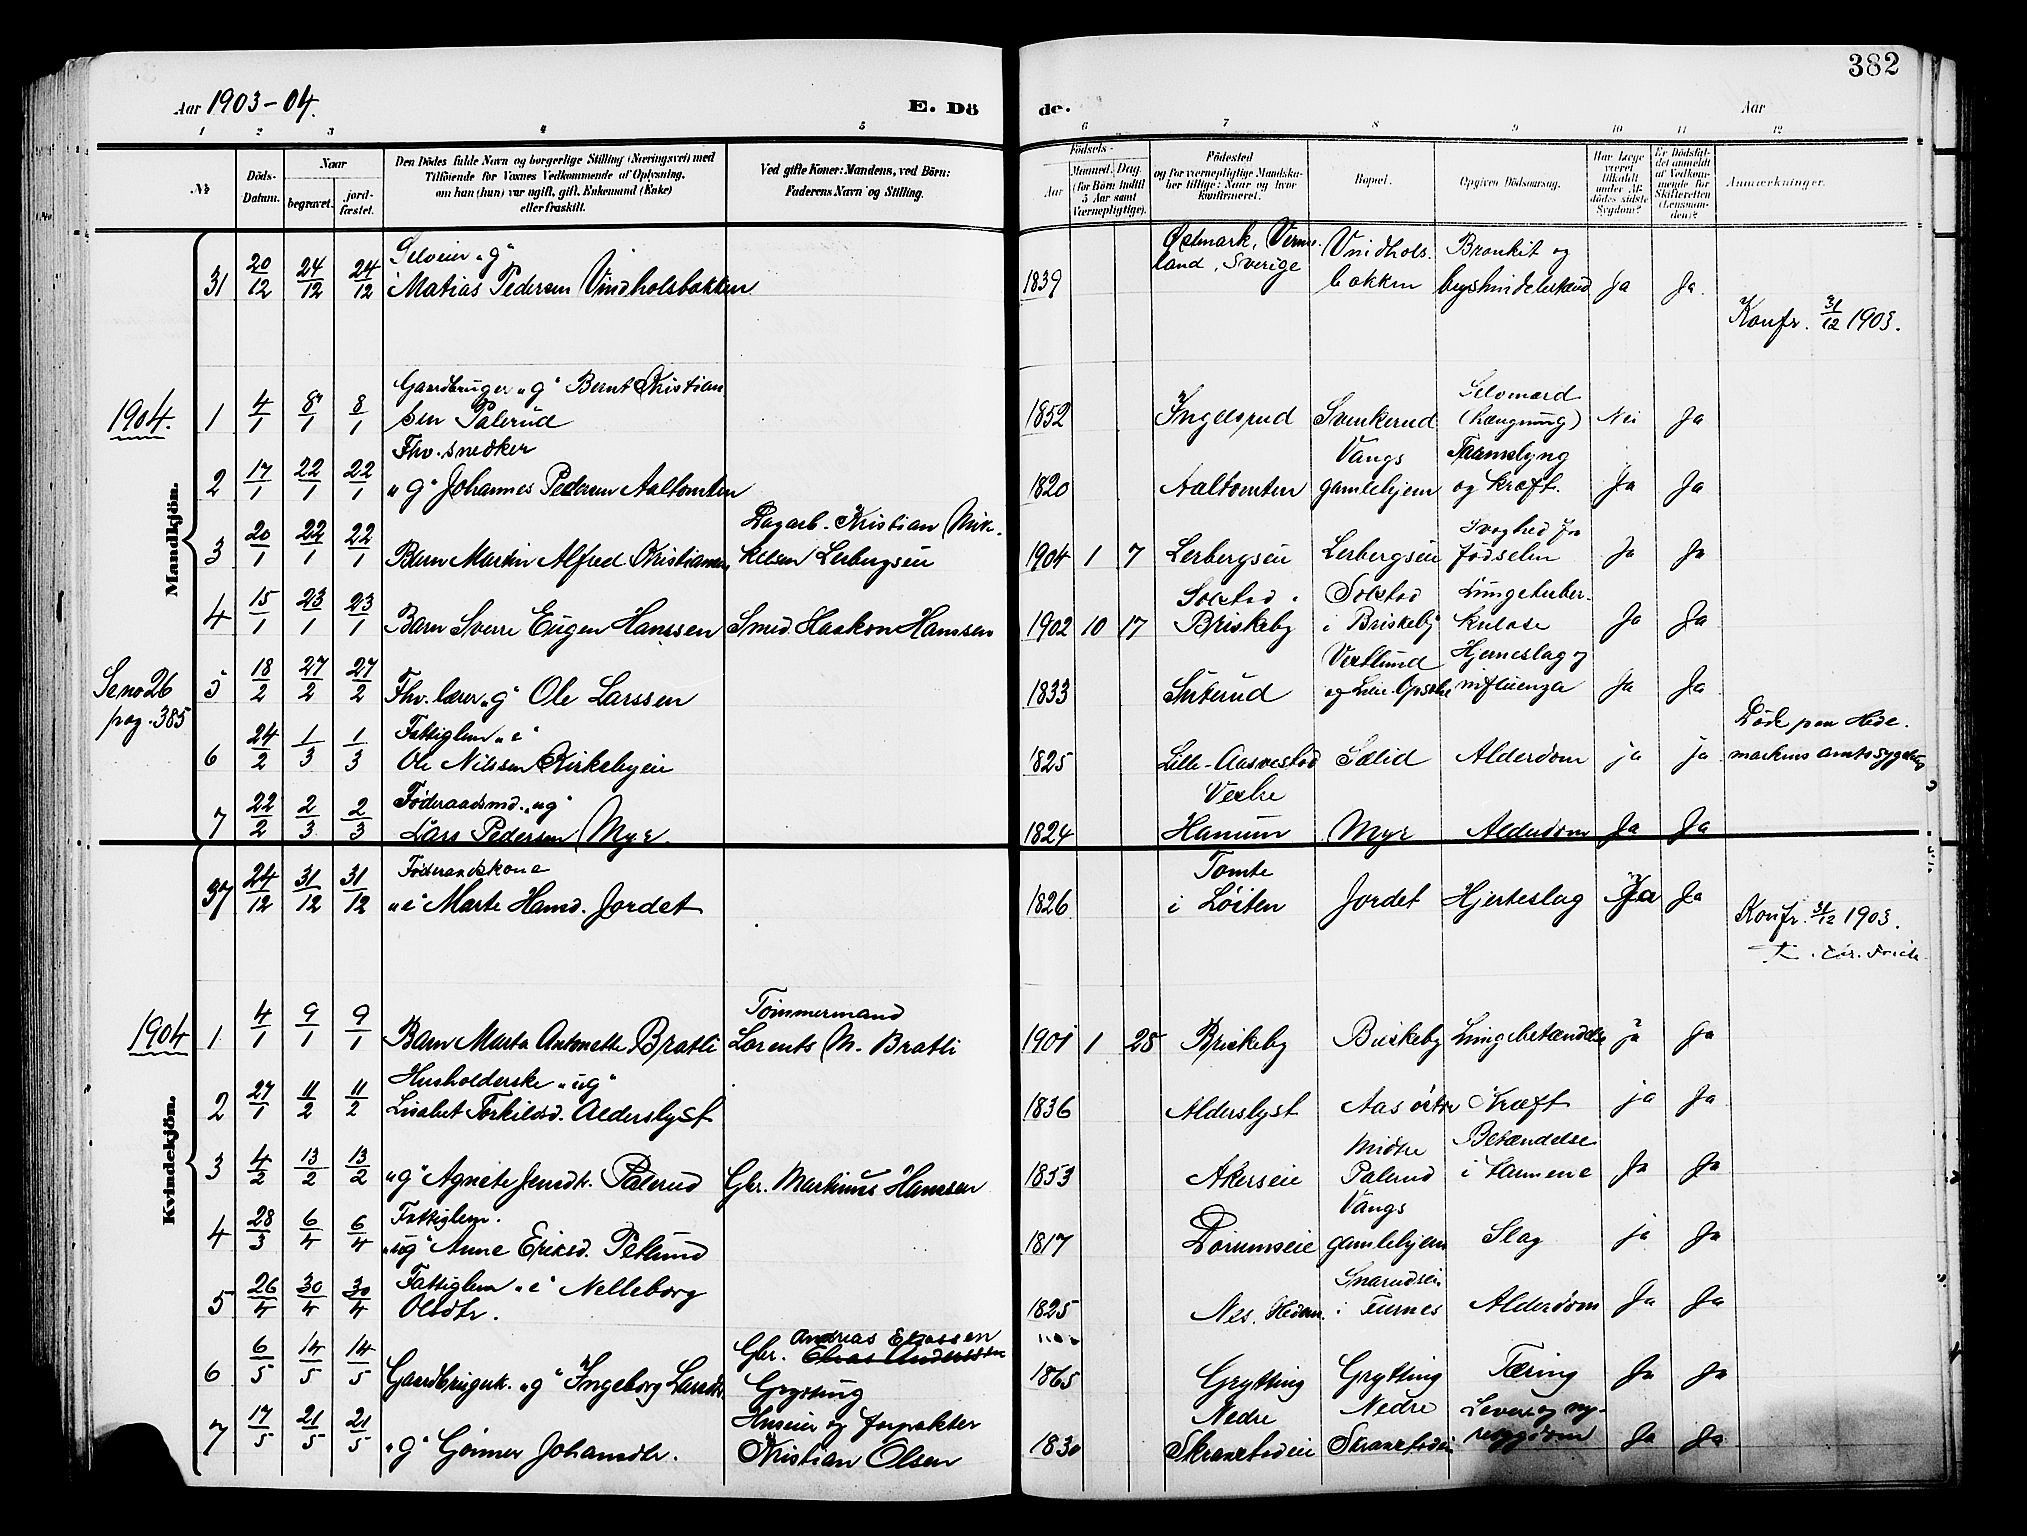 382
Aar 1903-04. E. Dö de. Aar
1 2 3 4 5 6 7 8 9 10 11 12
№ Döds-Datum. Naar begravet. jord-fæstet. Den Dödes fulde Navn og borgerlige Stilling (Næringsvei) med Tilföiende for Voxnes Vedkommende af Oplysning, om han (hun) var ugift, gift, Enkemand (Enke) eller fraskilt. Ved gifte Koner: Mandens, ved Börn: Faderens Navn og Stilling. Födsels- Aar Maaned. Dag (for Börn indtil 5 Aar samt Værnepligtige). Födested og for værnepligtige Mandska-ber tillige: Naar og hvor konfirmeret. Bopæl. Opgiven Dödsaarsag. Har Læge været tilkaldt under Af-dödes sidste Sygdom? Er Dödsfal-det anmeldt af Vedkom-mende for Skifteretten (Lensman-den)? Anmærkninger.
Mandkjön.
31 20/12 24/12 24/12 Selveier "g" Matias Pedersen Vindholsbakken 1839 Østmark, Verm-land, Sverige Vindhols-bakken Bronkit og Ja Ja.
Konfr. 31/12 1903.
1904.
1 4/1 8/1 8/1 Gaardbruger "g" Bernt Kristian-sen Palerud 1852 Ingelsrud Svenkerud Selvmord (Hængning) Nei Ja
2 17/1 22/1 22/1 Fhv. snedker "g" Johannes Pedersen Aaltomten 1820 Aaltomten Vangs gamlehjem Tarmslyng og kræft. Ja Ja
3 20/1 22/1 22/1 Barn Martin Alfred Kristiansen Dagarb. Kristian Mik-kelsen Lerbergseie 1904 1 7 Lerbergseie Lerbergseie Svaghed fra fødselen Ja Ja
4 15/1 23/1 23/1 Barn Sverre Eugen Hanssen Smed. Haakon Hanssen 1902 10 17 Solstad i Briskeby Solstad i Briskeby Lungetuber-kulose Ja Ja
Se no 26 pag. 385
5 18/2 27/2 27/2 Fhv. lærer "g" Ole Larssen 1833 Sæterud Hjerneslag og influenza Ja Ja
6 24/2 1/3 1/3 Fattiglem "e" Ole Nilssen Kirkebyeie 1825 Lille-Aasvestad Sælid Alderdom ja ja Døde paa Hede-markens amtssygehus
7 22/2 2/3 2/3 Føderaadsmd. "ug" Lars Pedersen Myr. 1824 Vestre Hanum Myr Alderdom Ja Ja
Kvindekjön.
37 24/12 31/12 31/12 Føderaadskone "e" Marte Hansd. Jordet 1826 Tomte i Løiten Jordet Hjerteslag Ja Ja
Konfr. 31/12 1903.
1904
1 4/1 9/1 9/1 Barn Marta Antonette Bratli Tømmermand Lorents M. Bratli 1901 1 28 Briskeby Briskeby Lungebetændelse ja Ja
2 27/1 11/2 11/2 Husholderske "ug" Lisabet Torkildsd. Alderslyst 1836 Alderslyst Aas østre Kræft ja Ja
3 4/2 13/2 13/2 "g" Agnete Jensdtr. Palerud Gbr. Martinus Hanssen 1853 Akerseie Midtre Palerud Betændelse i tarmene Ja Ja
4 28/3 6/4 6/4 Fattiglem. "ug" Anne Eriksd. Petlund 1817 Dorumseie Vangs gamlehjem Slag ja Ja
5 26/4 30/4 30/4 Fattiglem "e" Nelleborg Olsdtr. 1825 Nes, Hedem. Snarudseie i Furnes Alderdom Ja Ja
6 6/5 14/5 14/5 Gaardbrugerk. "g" Ingeborg Larsdtr. Gbr. Andreas Eliassen Elias Anderssen Grytting 1865 Grytting Grytting Tæring Ja Ja
7 17/5 21/5 21/5 "g" Gønner Johansdtr. Huseier og forpakter Kristian Olsen 1830 Nedre Skrarstadeie Nedre Skrarstadeie Lever og ny-resygdom Ja Ja